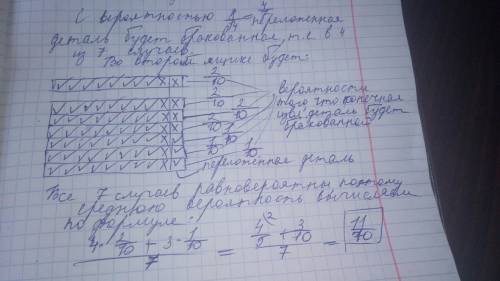 С вероятностью 4/7 переложенная
деталь будет бракованная, т.е. в 4
из 7 случаев.
Во втором ящике будет:
2/10
2/10
2/10
2/10
1/10
1/10
1/10
вероятности
того что конечная
деталь будет
бракованной
переложенная деталь
Все 7 случаев равновероятны поэтому
среднюю вероятность вычисляем
по формуле:
(4·2/10 + 3·1/10)/7 = (4/5 + 3/10)/7 = 11/70